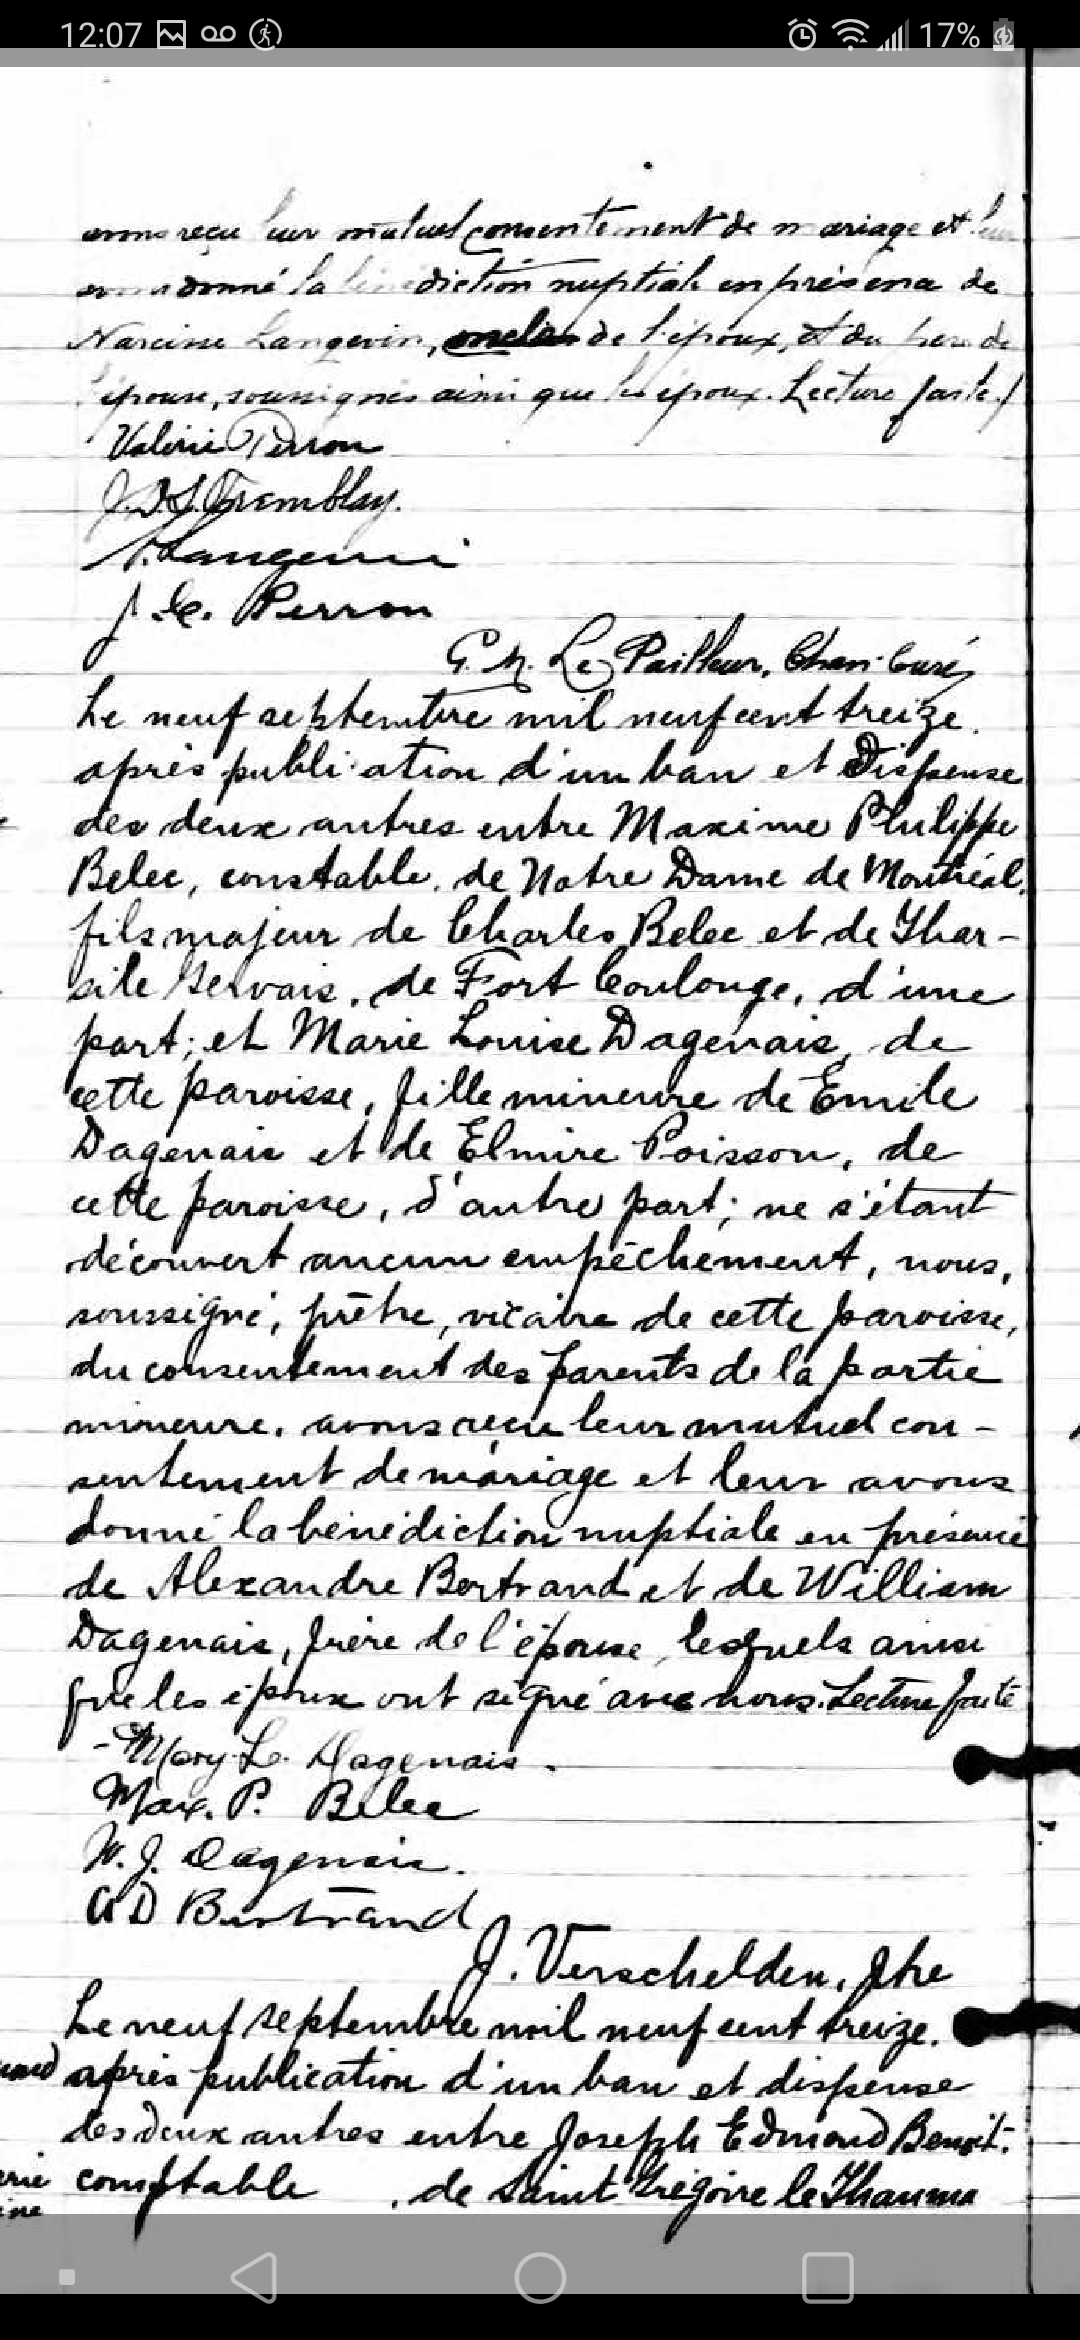 12:07 17%
avons reçu leur mutuel consentement de mariage et leur
avons donné la bénédiction nuptiale en présence de
Narcisse Langevin, oncle de l'époux, et du père de
l'épouse, soussignés ainsi que les époux. Lecture faite./
Valérie Perron
J.D.S. Tremblay.
N. Langevin
J. E. Perron
G. M. Le Pailleur, Chan. Curé,
Le neuf septembre mil neuf cent treize.
après publication d'un ban et dispense
des deux autres entre Maxime Philippe
Belec, constable, de Notre Dame de Montréal,
fils majeur de Charles Belec et de Thar-
sile Gervais, de Fort Coulonge, d'une
part; et Marie Louise Dagenais, de
cette paroisse, fille mineure de Emile
Dagenais et de Elmire Poisson, de
cette paroisse, d'autre part; ne s'étant
découvert aucun empêchement, nous,
soussigné, prêtre, vicaire de cette paroisse,
du consentement des parents de la partie
mineure, avons reçu leur mutuel con-
sentement de mariage et leur avons
donné la bénédiction nuptiale en présence
de Alexandre Bertrand et de William
Dagenais, frère de l'épouse, lesquels ainsi
que les époux ont signé avec nous. Lecture faite
- Mary L. Dagenais.
Max. P. Belec
W. J. Dagenais.
A D Bertrand
J. Verschelden, Ptre
Le neuf septembre mil neuf cent treize.
après publication d'un ban et dispense
des deux autres entre Joseph Edmond Benoit.
comptable , de Saint Grégoire le Thauma